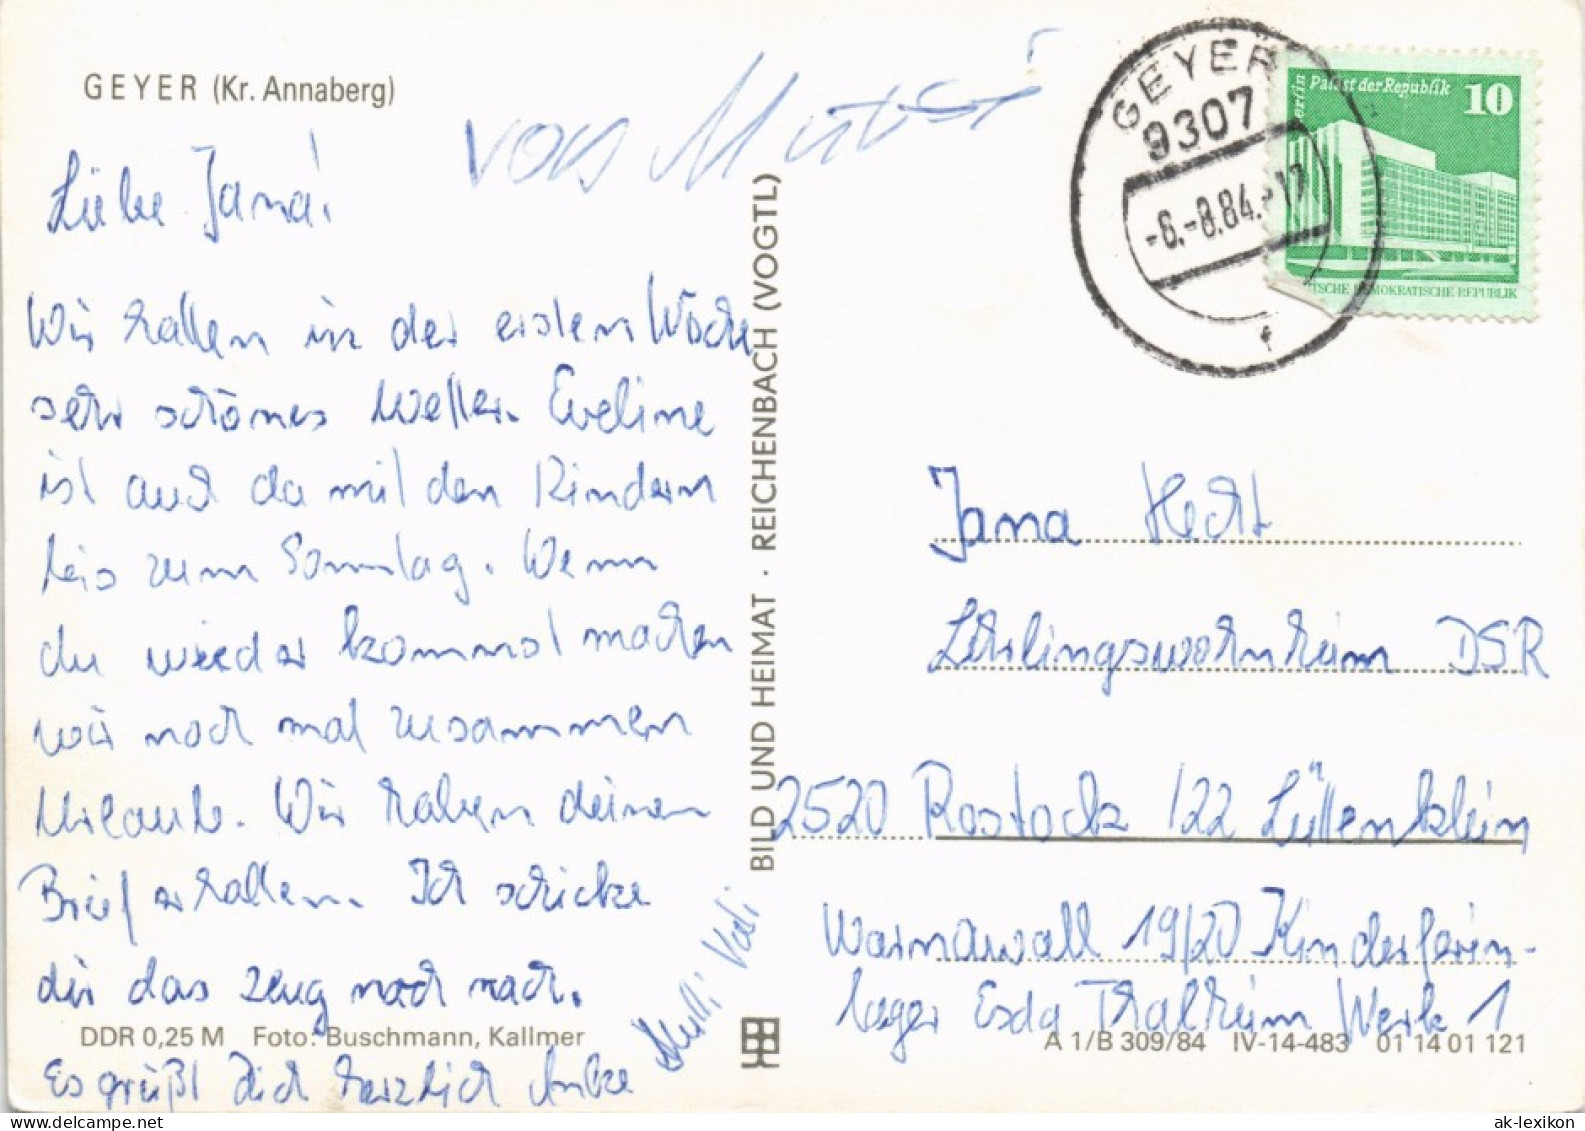 GEYER (Kr. Annaberg)
von Mutti
Liebe Jana!
Wir hatten in der ersten Woche
sehr schönes Wetter. Eveline
ist auch da mit den Kindern
bis zum Sonntag. Wenn
du wieder kommst machen
wir noch mal zusammen
Urlaub. Wir haben deinen
Brief erhalten. Ich schicke
dir das Zeug noch nach.
Es grüßt Dich herzlich Anke
Mutti Vati
DDR 0,25 M Foto: Buschmann, Kallmer
BILD UND HEIMAT · REICHENBACH (VOGTL)
GEYER
9307
-6.-8.84.-17
f
Berlin Palast der Republik 10
TSCHE DEMOKRATISCHE REPUBLIK
Jana Hecht
Lehrlingswohnheim DSR
2520 Rostock 122 Lüttenklein
Warnowall 19/20 Kinderferien-
lager Esda Thalheim Werk 1
A 1/B 309/84 IV-14-483 01 14 01 121
ak-lexikon.com